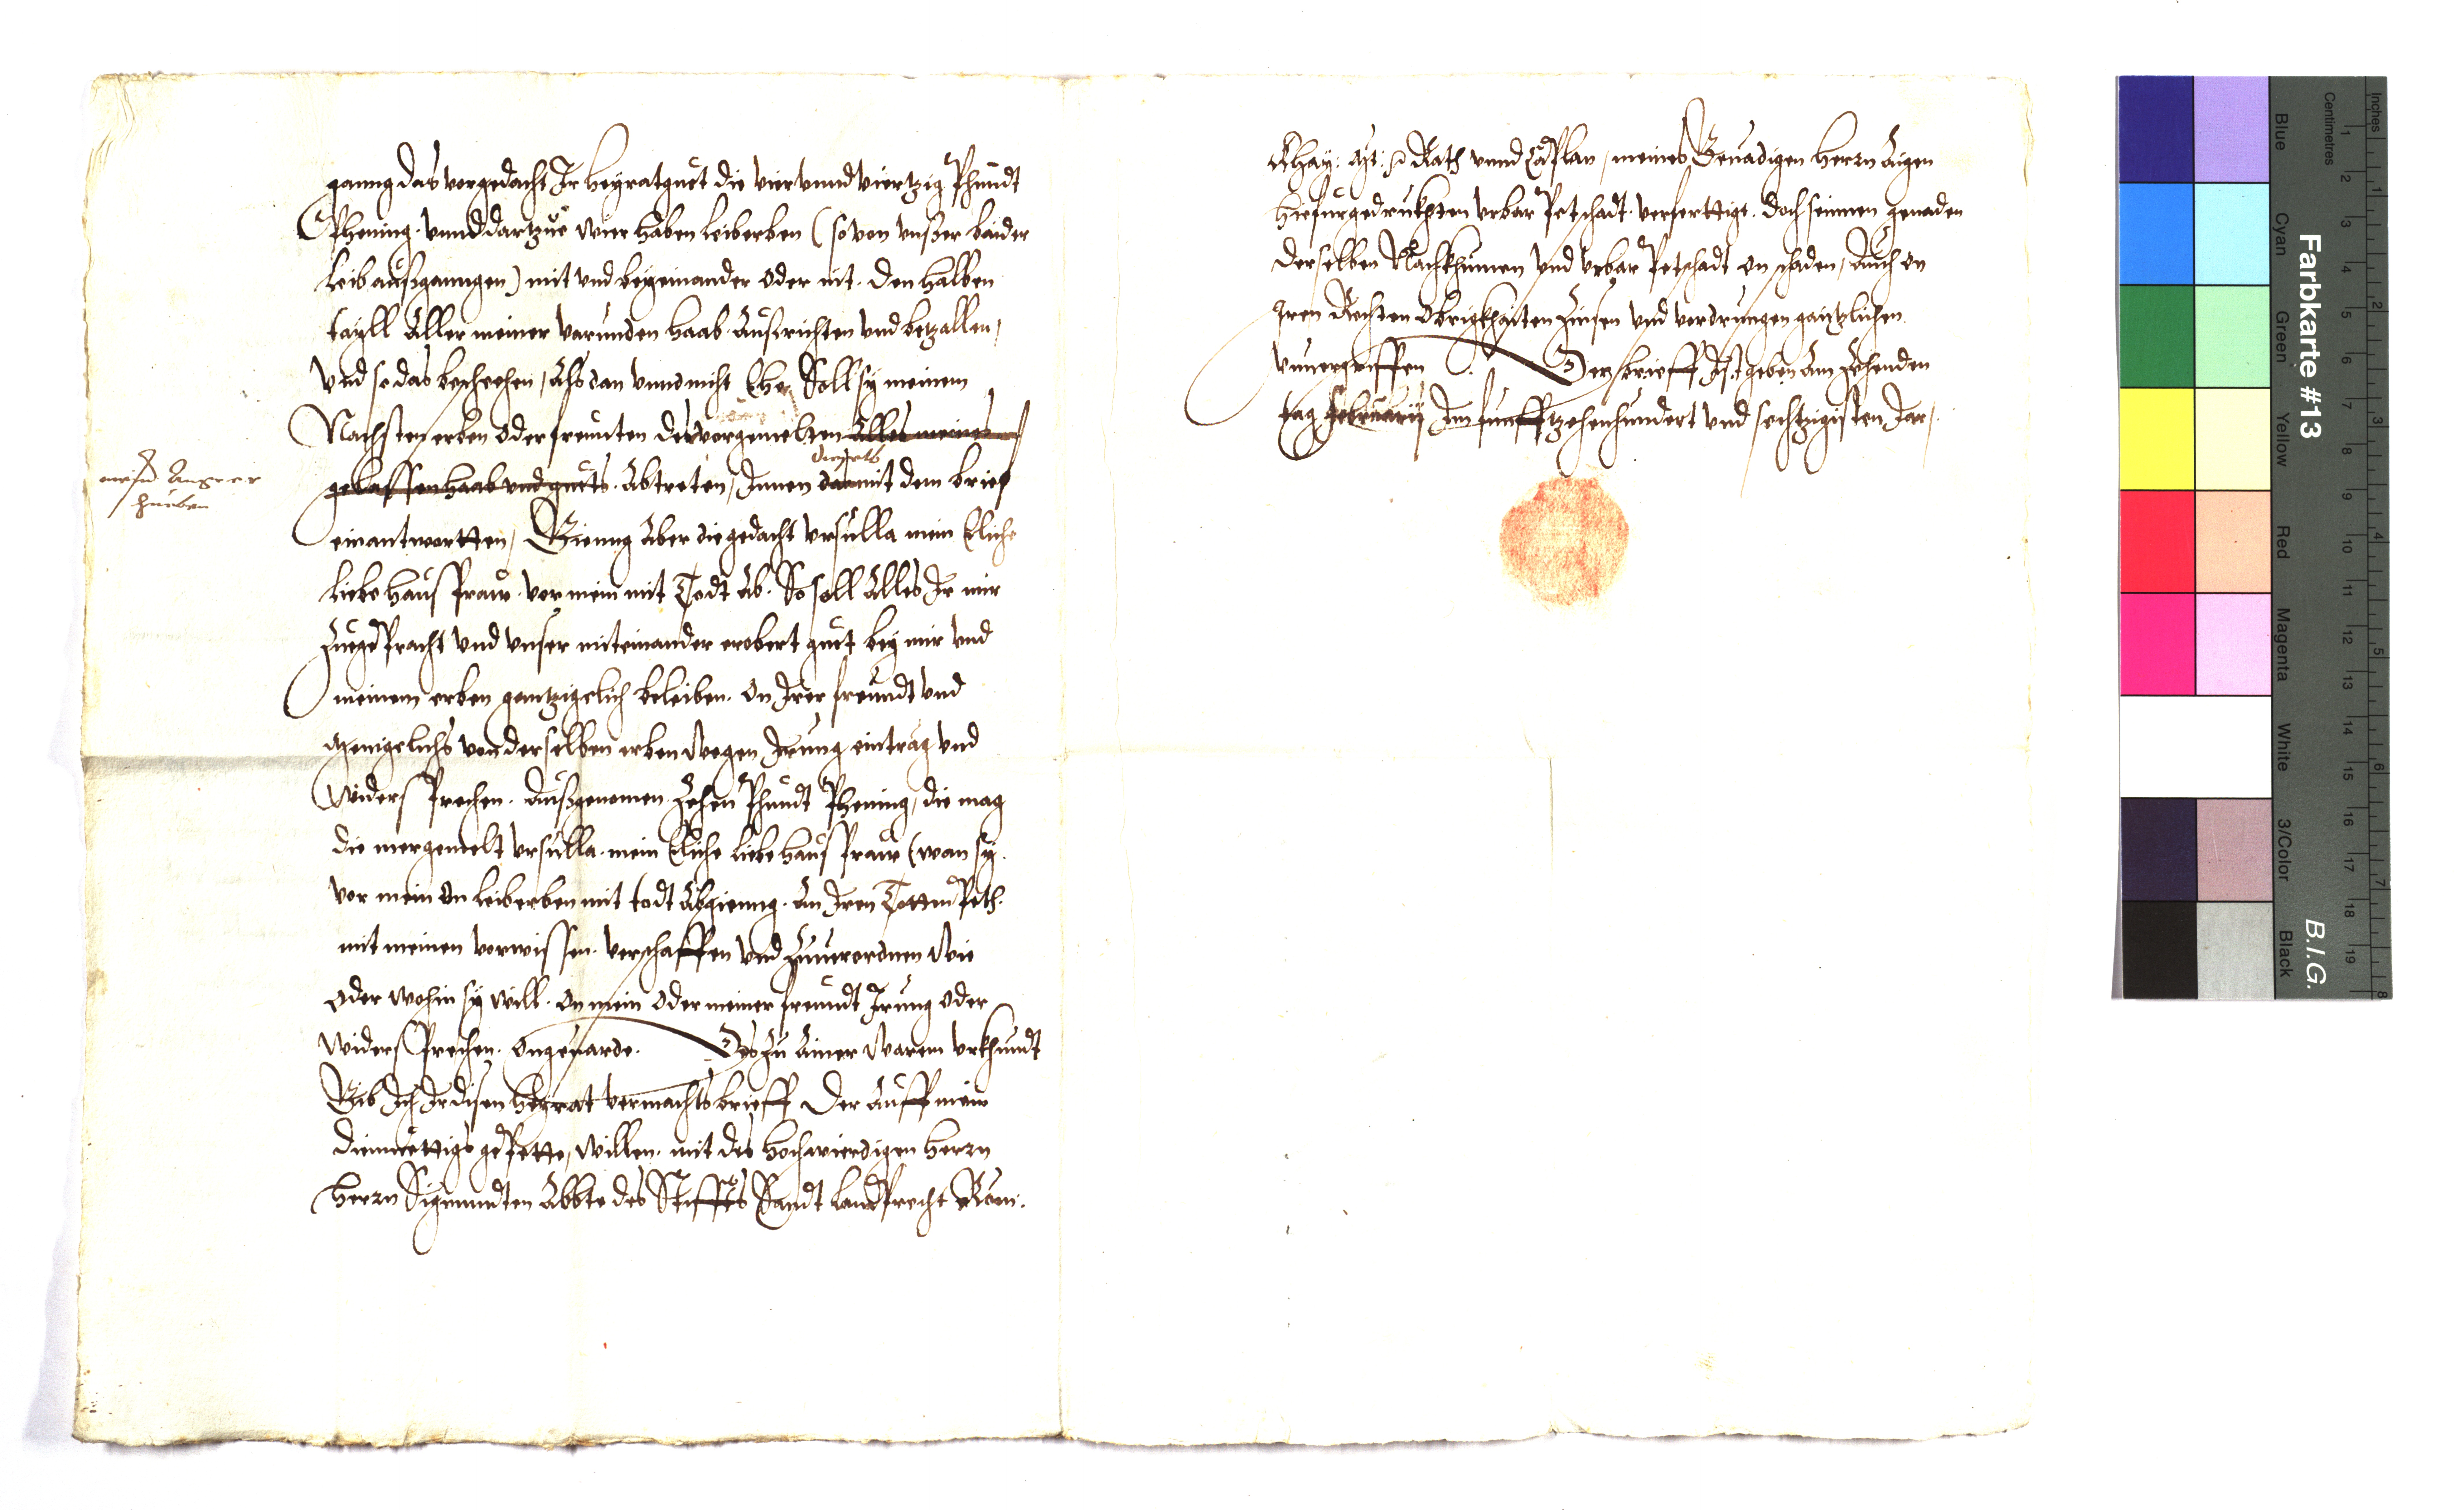 ganng das vorgedacht Ir heyratguet die viervnndviertzig Phundt
Phening. vnnd dartzue wier haben leiberben (so von vnser baider
leib außganngen) mit vnd beyeinander oder nit. den halben
tayll Aller meiner varunden haab Außrichten vnd betzallen,
Vnd so das beschehen, Alsdan vnnd nicht Ehe, Soll sy meinem
Nachsten erben oder freunten des vorgemelten Alles meines
gelassen haab vnd guets. Abtreten, Innen damit dem brief
mein Angerer
hueben
einantwortten, Gienng Aber die gedacht Vrsulla mein Eliche
liebe hausfraw. vor mein mit Todt Ab. So soll Alles Ir mir
Zuegepracht vnd vnser miteinander erobert guet bey mir vnd
meinem erben gentzigclich beleiben. On Irer freundt vnd
menigclichs von derselben erben wegen Irung eintrag vnd
widersprechen. Außgenomen Zehen Phundt Phening, die mag
die mergemelt Vrsulla. mein Eliche liebe hausfraw (wan sy.
vor mein On leiberben mit todt Abgienng. An Iren Tottn Peth.
mit meinen vorwissen. verschaffen vnd Zuuerordnen Wie
oder wohin sy will. On mein oder meiner freundt Irung oder
widersprechen. Ongeuarde. Des Zu Ainer Waren vrkhundt
Gib Ich Ir disen heyrat vermachtsbrieff Der Auff mein
diemuettigs gepette, willen. mit des hochwierdigen herrn
herrn Sigmundten Abbte des Stiffts Sandt Landprecht Röm:
Khay: Mt: Rath vnnd Caplan, meines Genadigen herrn Aigen
hiefurgedrukhten vrbar Petschadt. verferttigt. doch seinnen genaden
derselben Nachkhumen vnd vrbar Petschadt on schaden, Auch on
Iren Rechten Obrigkhaiten Zinsen vnd vordrungen gantzlichen
vnuergriffen. Der brieff Ist geben Am Zehenden
tag february Im funfftzehenhundert vnd sechtzigisten Jar,
Inches
Centimetres
Farbkarte #13
B.I.G.
Blue
Cyan
Green
Yellow
Red
Magenta
White
3/Color
Black
1 2 3 4 5 6 7 8 9 10 11 12 13 14 15 16 17 18 19
1 2 3 4 5 6 7 8